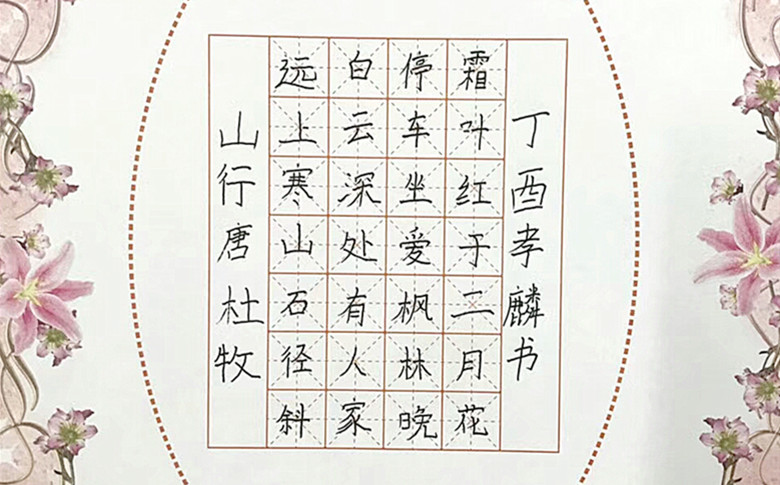 山行唐杜牧
远上寒山石径斜
白云深处有人家
停车坐爱枫林晚
霜叶红于二月花
丁酉孝麟书